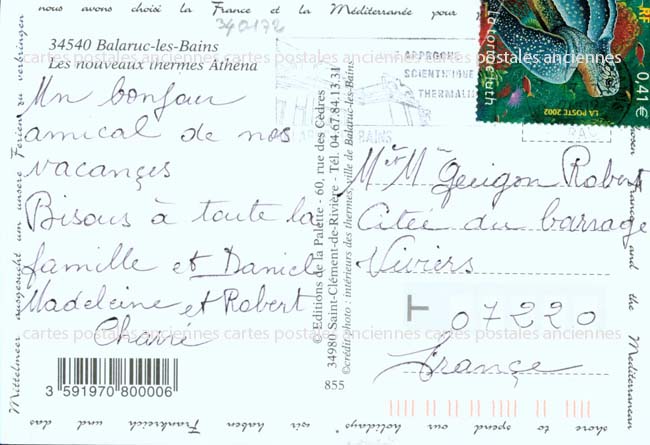 nous avons choisi la France et la Méditerranée pour
340172
34540 Balaruc-les-Bains
Les nouveaux thermes Athéna
Un bonjour
amical de nos
vacances
Bisous à toute la
famille et Daniel
Madeleine et Robert
Charré
3 591970 800006
© Editions de la Palette - 60, rue des Cèdres
34980 Saint-Clément-de-Rivière - Tél. 04.67.84.13.34
©crédit photo : intérieurs des thermes, ville de Balaruc-les-Bains
855
APPROCHE
SCIENTIFIQUE
THERMALIS
BAINS
RF
0,41 €
LA POSTE 2002
Mr et Me Guigon Robert
Citée du barrage
Viviers
T 07220
France
and the Mediterranean
shore to spend our holidays" "wir haben Frankreich und das
Mittelmeer ausgesucht um unsere Ferien zu verbringen
cartes postales anciennes cartes postales anciennes cartes postales anciennes
cartes postales anciennes cartes postales anciennes cartes postales anciennes
cartes postales anciennes cartes postales anciennes cartes postales anciennes